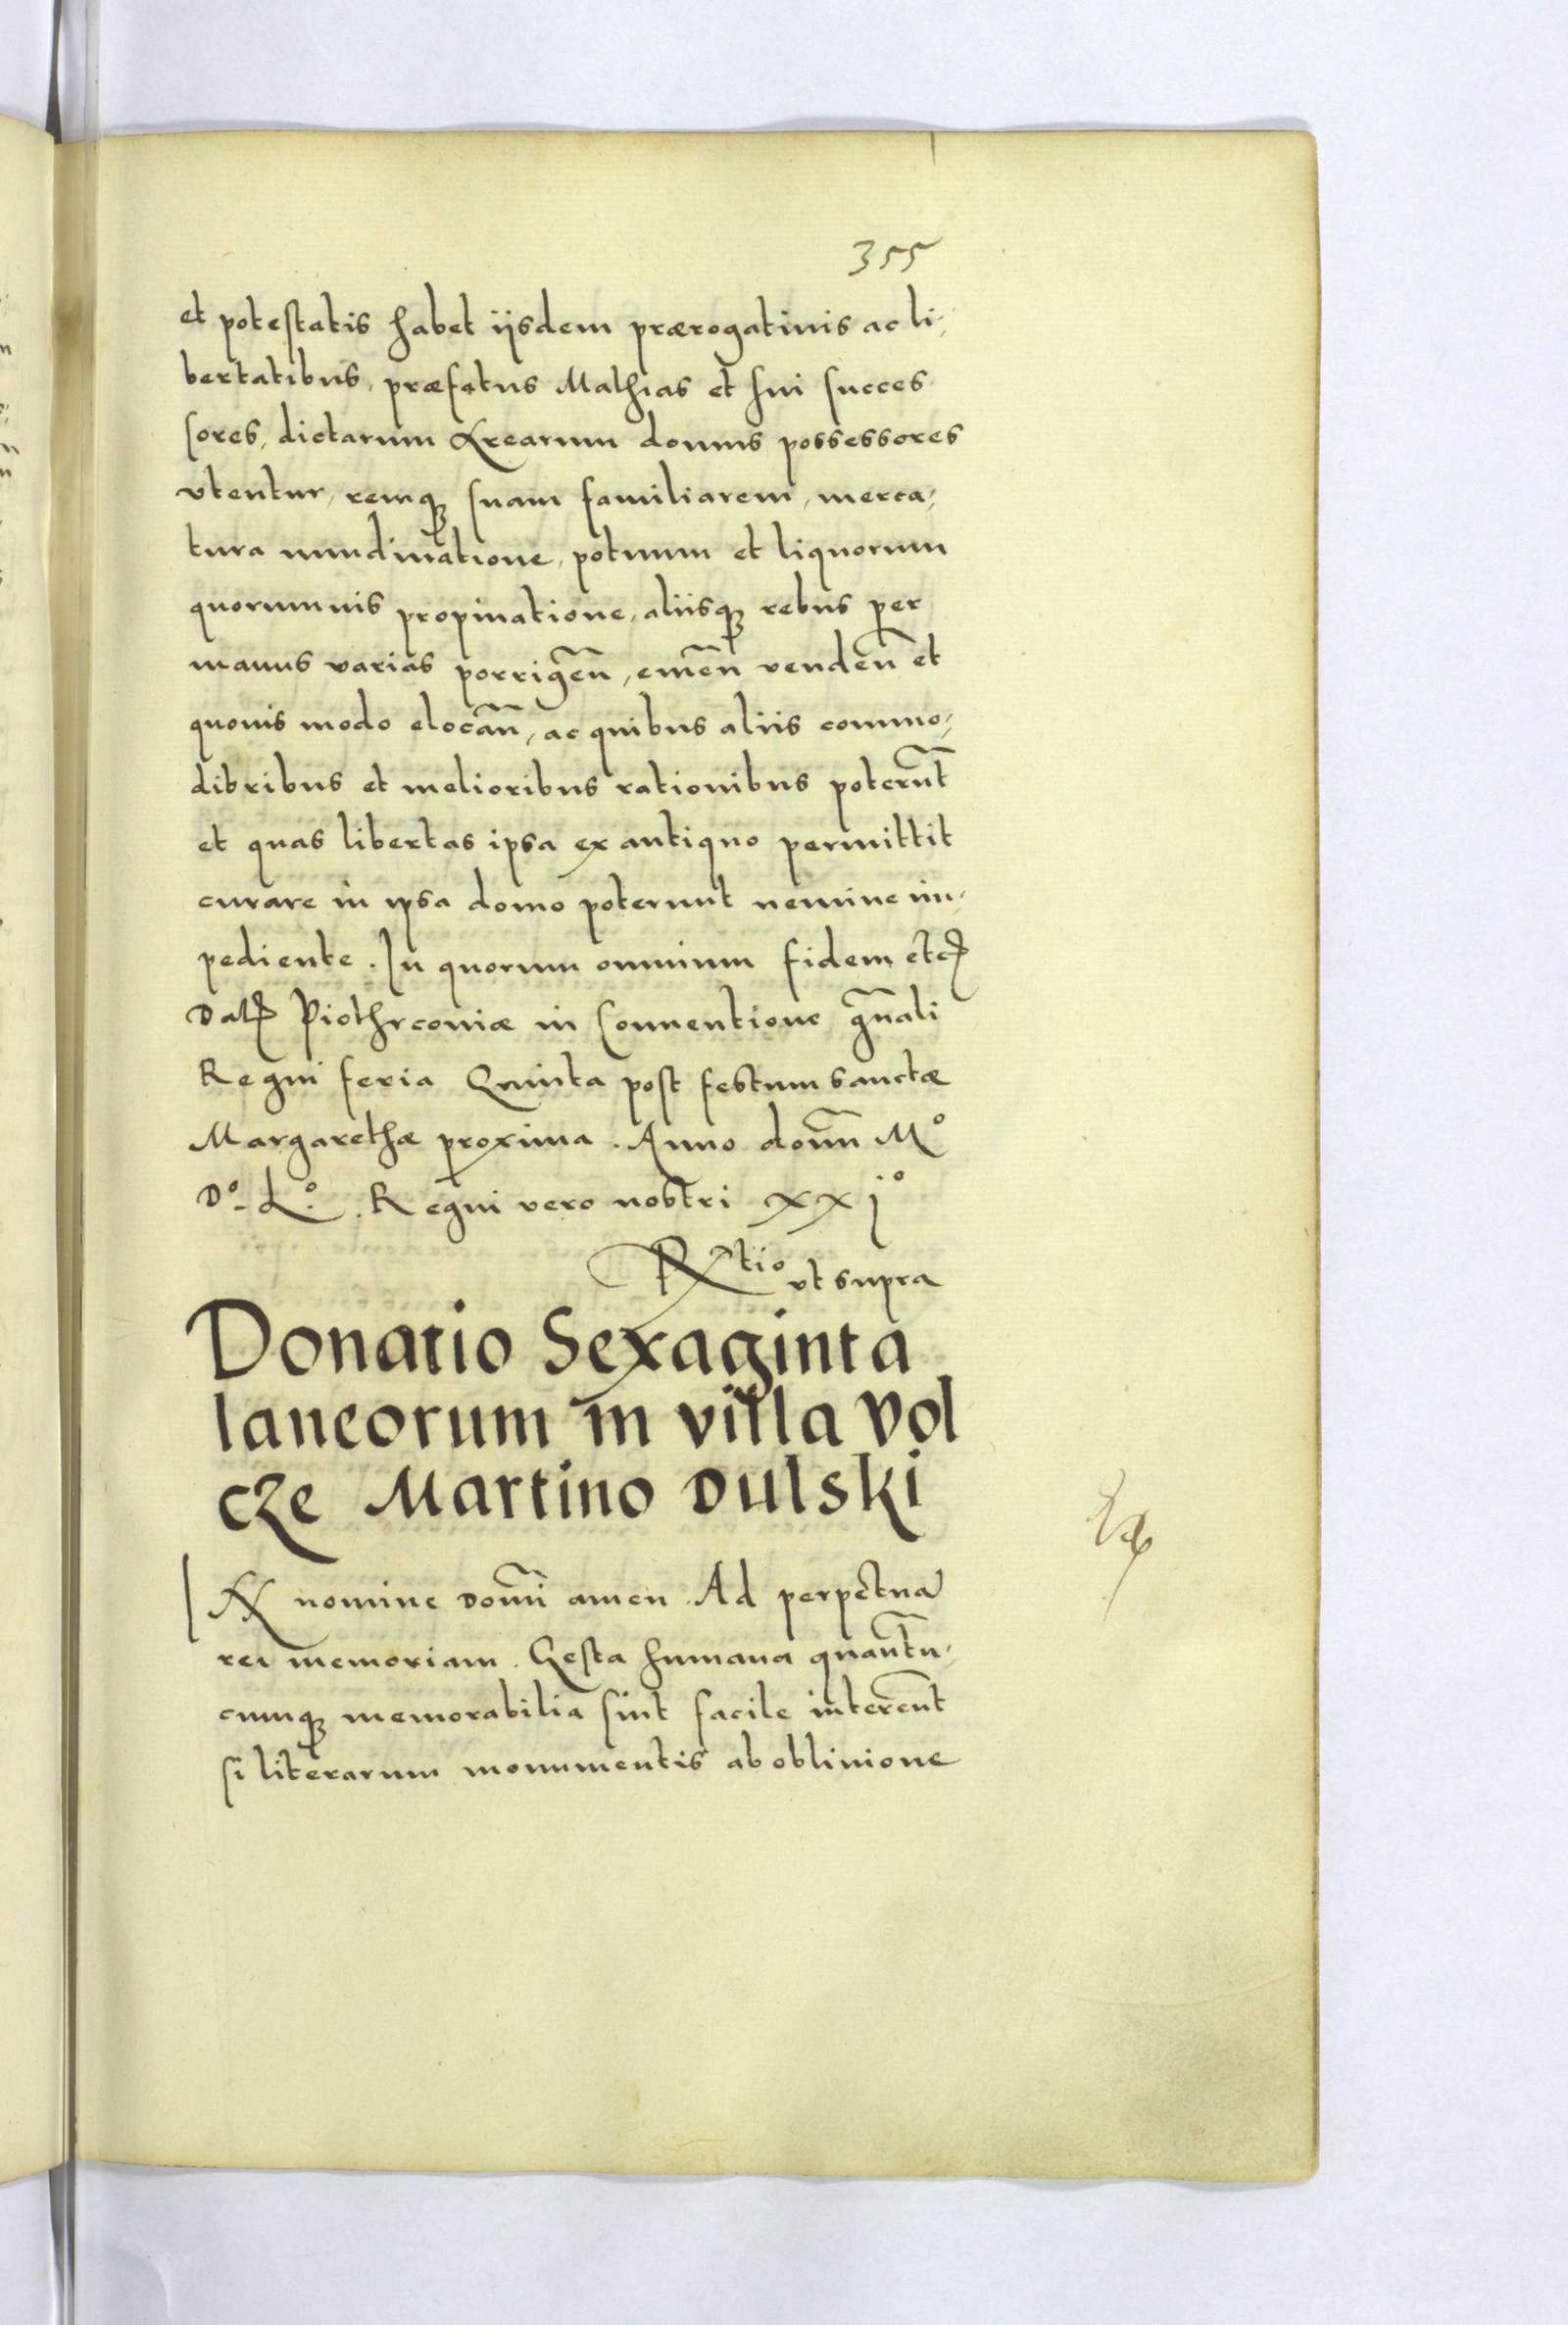 355
et potestatis habet iisdem prærogatiuis ac li,
bertatibus, præfatus Mathias et sui succes
sores, dictarum Arearum domus possessores
vtentur, remqꝫ suam familiarem, merca,
tura nundinatione, potuum et liquorum
quorumuis propinatione, aliisqꝫ rebus per
manus varias porrigen̄, emen̄ venden̄ et
quouis modo elocan̄, ac quibus aliis commo,
dioribus et melioribus rationibus poterun̄t
et quas libertas ipsa ex antiquo permittit
curare in ipsa domo poterunt nemine im,
pediente. In quorum omnium fidem etcꝭ
Datꝭ Piothrcouiæ in Conuentione gn̄ali
Regni feria Quinta post festum sanctæ
Margarethæ proxima. Anno domn̄ Mº
Dº. Lº. Regni vero nostri xxjº
Rtio vt supra
Donatio Sexaginta
laneorum in villa Vol
cze Martino Dulski
IN nomine Domn̄i amen. Ad perpetuā
rei memoriam. Gesta humana quantū,
cumqꝫ memorabilia sint facile intereūnt
si literarum monumentis ab obliuione